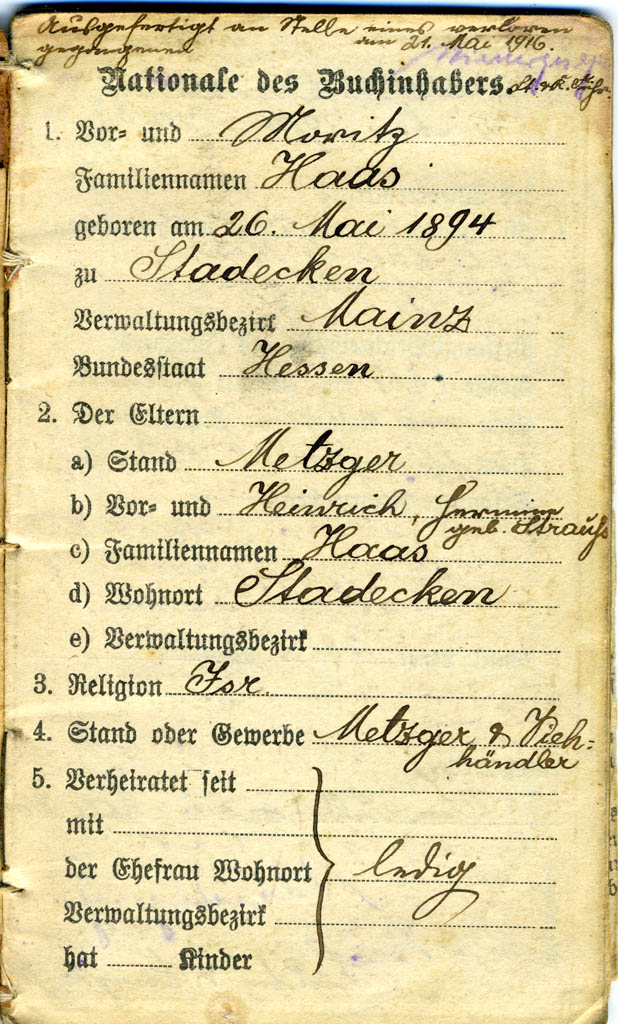 Ausgefertigt an Stelle eines verloren
gegangenen am 21. Mai 1916.
Nationale des Buchinhabers.
1. Vor- und Moritz
Familiennamen Haas
geboren am 26. Mai 1894
zu Stadecken
Verwaltungsbezirk Mainz
Bundesstaat Hessen
2. Der Eltern
a) Stand Metzger
b) Vor- und Heinrich, Hermine
geb. Strauß
c) Familiennamen Haas
d) Wohnort Stadecken
e) Verwaltungsbezirk
3. Religion Isr.
4. Stand oder Gewerbe Metzger & Vieh-
händler
5. Verheiratet seit
mit
der Ehefrau Wohnort ledig
Verwaltungsbezirk
hat Kinder